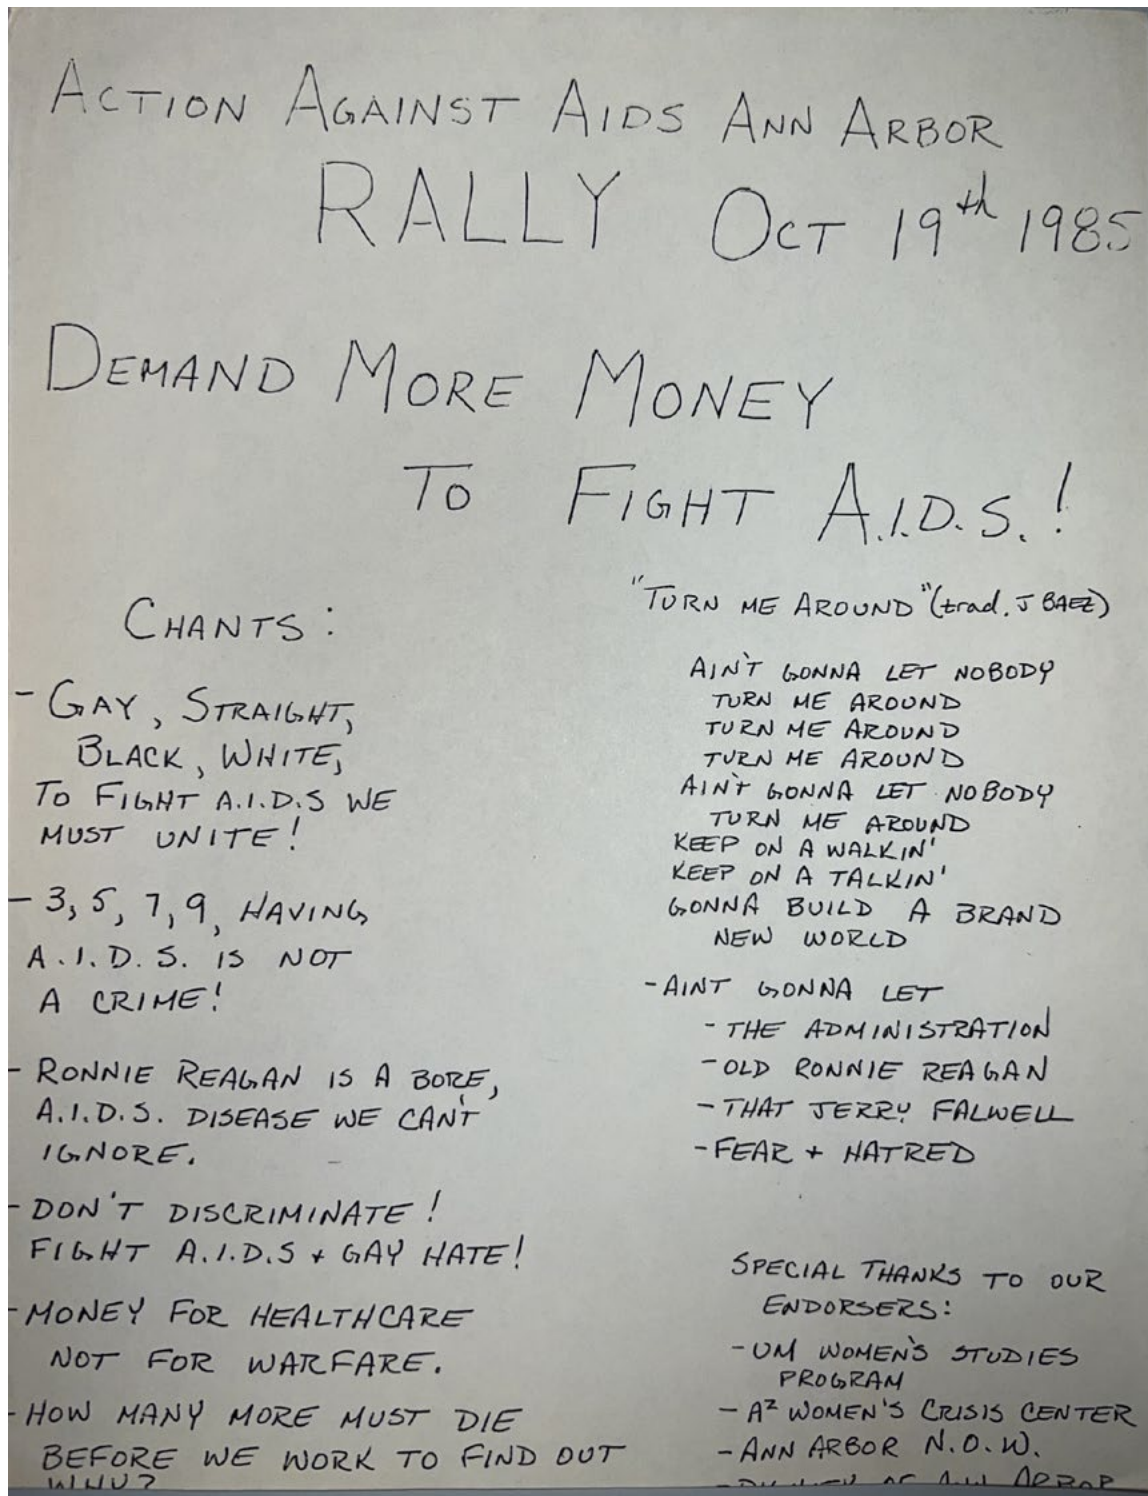 ACTION AGAINST AIDS ANN ARBOR
RALLY OCT 19th 1985
DEMAND MORE MONEY
TO FIGHT A.I.D.S.!
CHANTS:
- GAY, STRAIGHT,
BLACK, WHITE,
TO FIGHT A.I.D.S WE
MUST UNITE!
- 3, 5, 7, 9, HAVING
A.I.D.S. IS NOT
A CRIME!
- RONNIE REAGAN IS A BORE,
A.I.D.S. DISEASE WE CAN'T
IGNORE.
- DON'T DISCRIMINATE!
FIGHT A.I.D.S + GAY HATE!
- MONEY FOR HEALTHCARE
NOT FOR WARFARE.
- HOW MANY MORE MUST DIE
BEFORE WE WORK TO FIND OUT
WHY?
"TURN ME AROUND" (trad. J BAEZ)
AIN'T GONNA LET NOBODY
TURN ME AROUND
TURN ME AROUND
TURN ME AROUND
AIN'T GONNA LET NOBODY
TURN ME AROUND
KEEP ON A WALKIN'
KEEP ON A TALKIN'
GONNA BUILD A BRAND
NEW WORLD
- AINT GONNA LET
- THE ADMINISTRATION
- OLD RONNIE REAGAN
- THAT JERRY FALWELL
- FEAR + HATRED
SPECIAL THANKS TO OUR
ENDORSERS:
- UM WOMEN'S STUDIES
PROGRAM
- A² WOMEN'S CRISIS CENTER
- ANN ARBOR N.O.W.
- OF ANN ARBOR